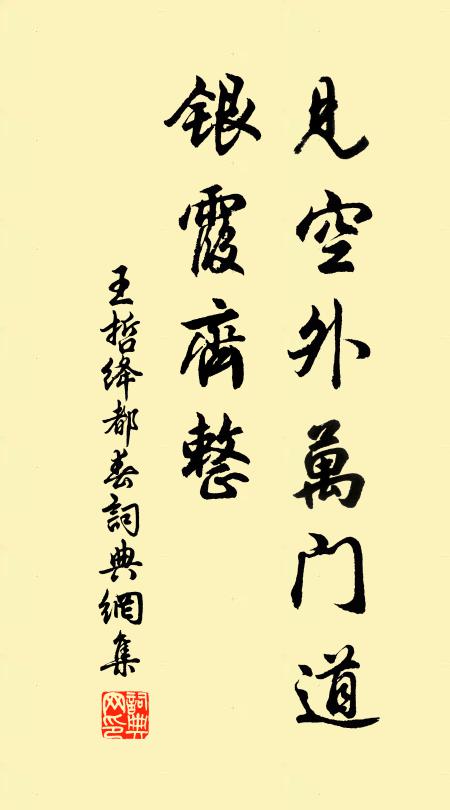 見空外萬门道
銀霞齊整
王哲绛都春詞典網集
詞典网印